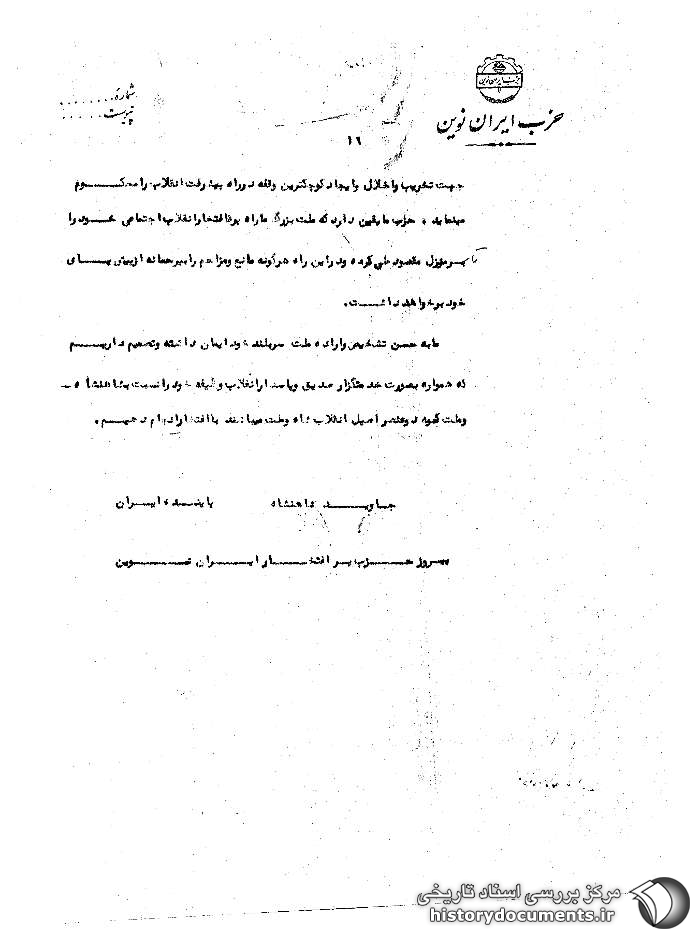 حزب ایران نوین
حزب ایران نوین
شماره
پیوست
۱۶
جهت تخریب و اخلال و ایجاد کوچکترین وقفه در راه پیشرفت انقلاب را محکوم
مینماید . حزب ما یقین دارد که ملت بزرگ ما راه پرافتخار انقلاب اجتماعی خود را
تا سرمنزل مقصود طی کرده و در این راه هرگونه مانع و مزاحم را بیرحمانه از پیش پای
خود بر خواهد داشت .
ما به حسن تشخیص و اراده ملت سربلند خود ایمان داشته و تصمیم داریم
که همواره بصورت خدمتگزار صدیق و پاسدار انقلاب وظیفه خود را نسبت بشاهنشاه
وملت که دو عنصر اصیل انقلاب شاه وملت میباشند با افتخار انجام دهیم .
جاوید شاهنشاه پاینده ایران
پیروز حزب پر افتخار ایران نوین
مرکز بررسی اسناد تاریخی
historydocuments.ir